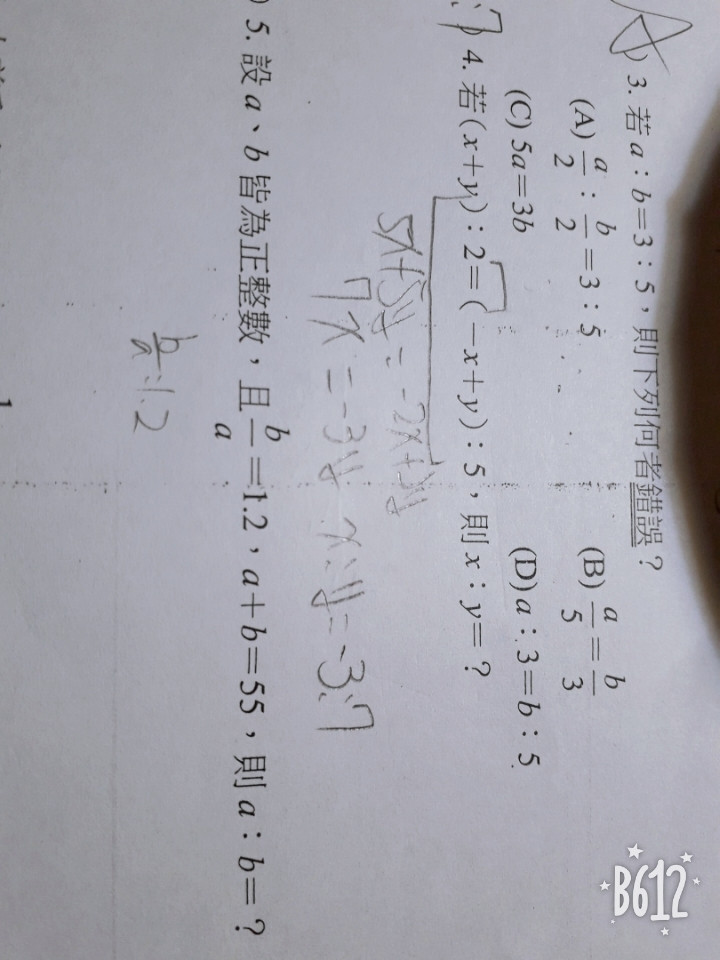 3. 若 a : b = 3 : 5，則下列何者錯誤？
(A) a/2 : b/2 = 3 : 5 (B) a/5 = b/3
(C) 5a = 3b (D) a : 3 = b : 5
:7) 4. 若 (x + y) : 2 = (－x + y) : 5，則 x : y = ？
5x+5y = -2x+2y
7x = -3y x:y = -3:7
) 5. 設 a、b 皆為正整數，且 b/a = 1.2，a + b = 55，則 a : b = ？
b/a = 1.2
B612